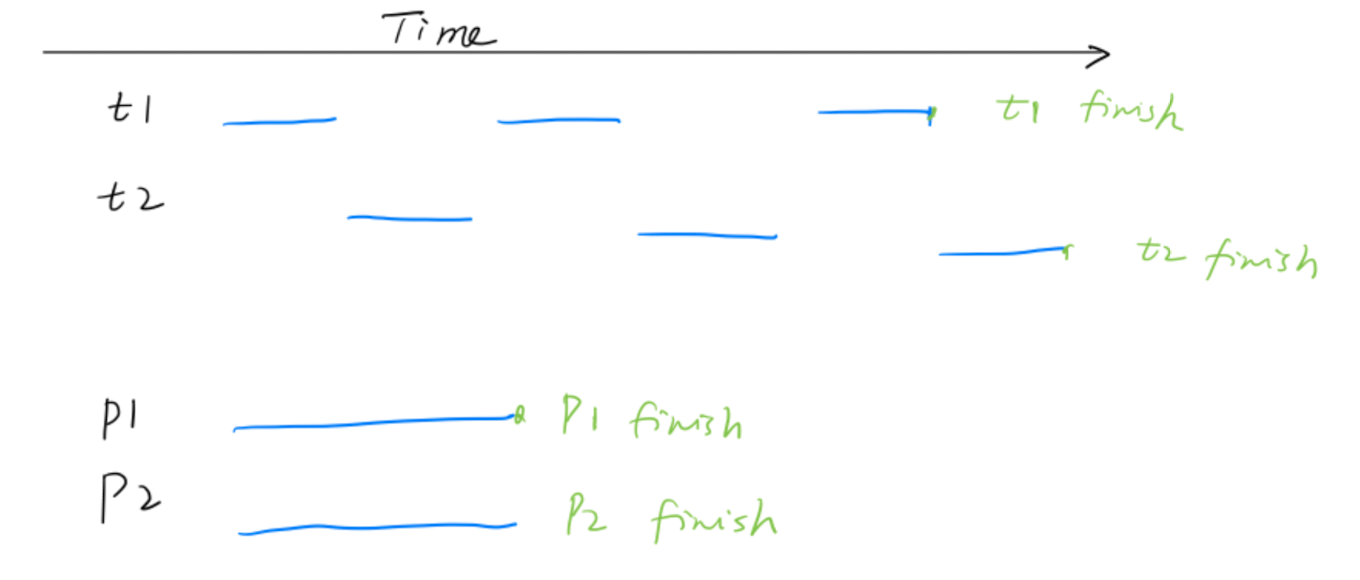 Time
t1 t1 finish
t2
t2 finish
p1 P1 finish
P2 P2 finish